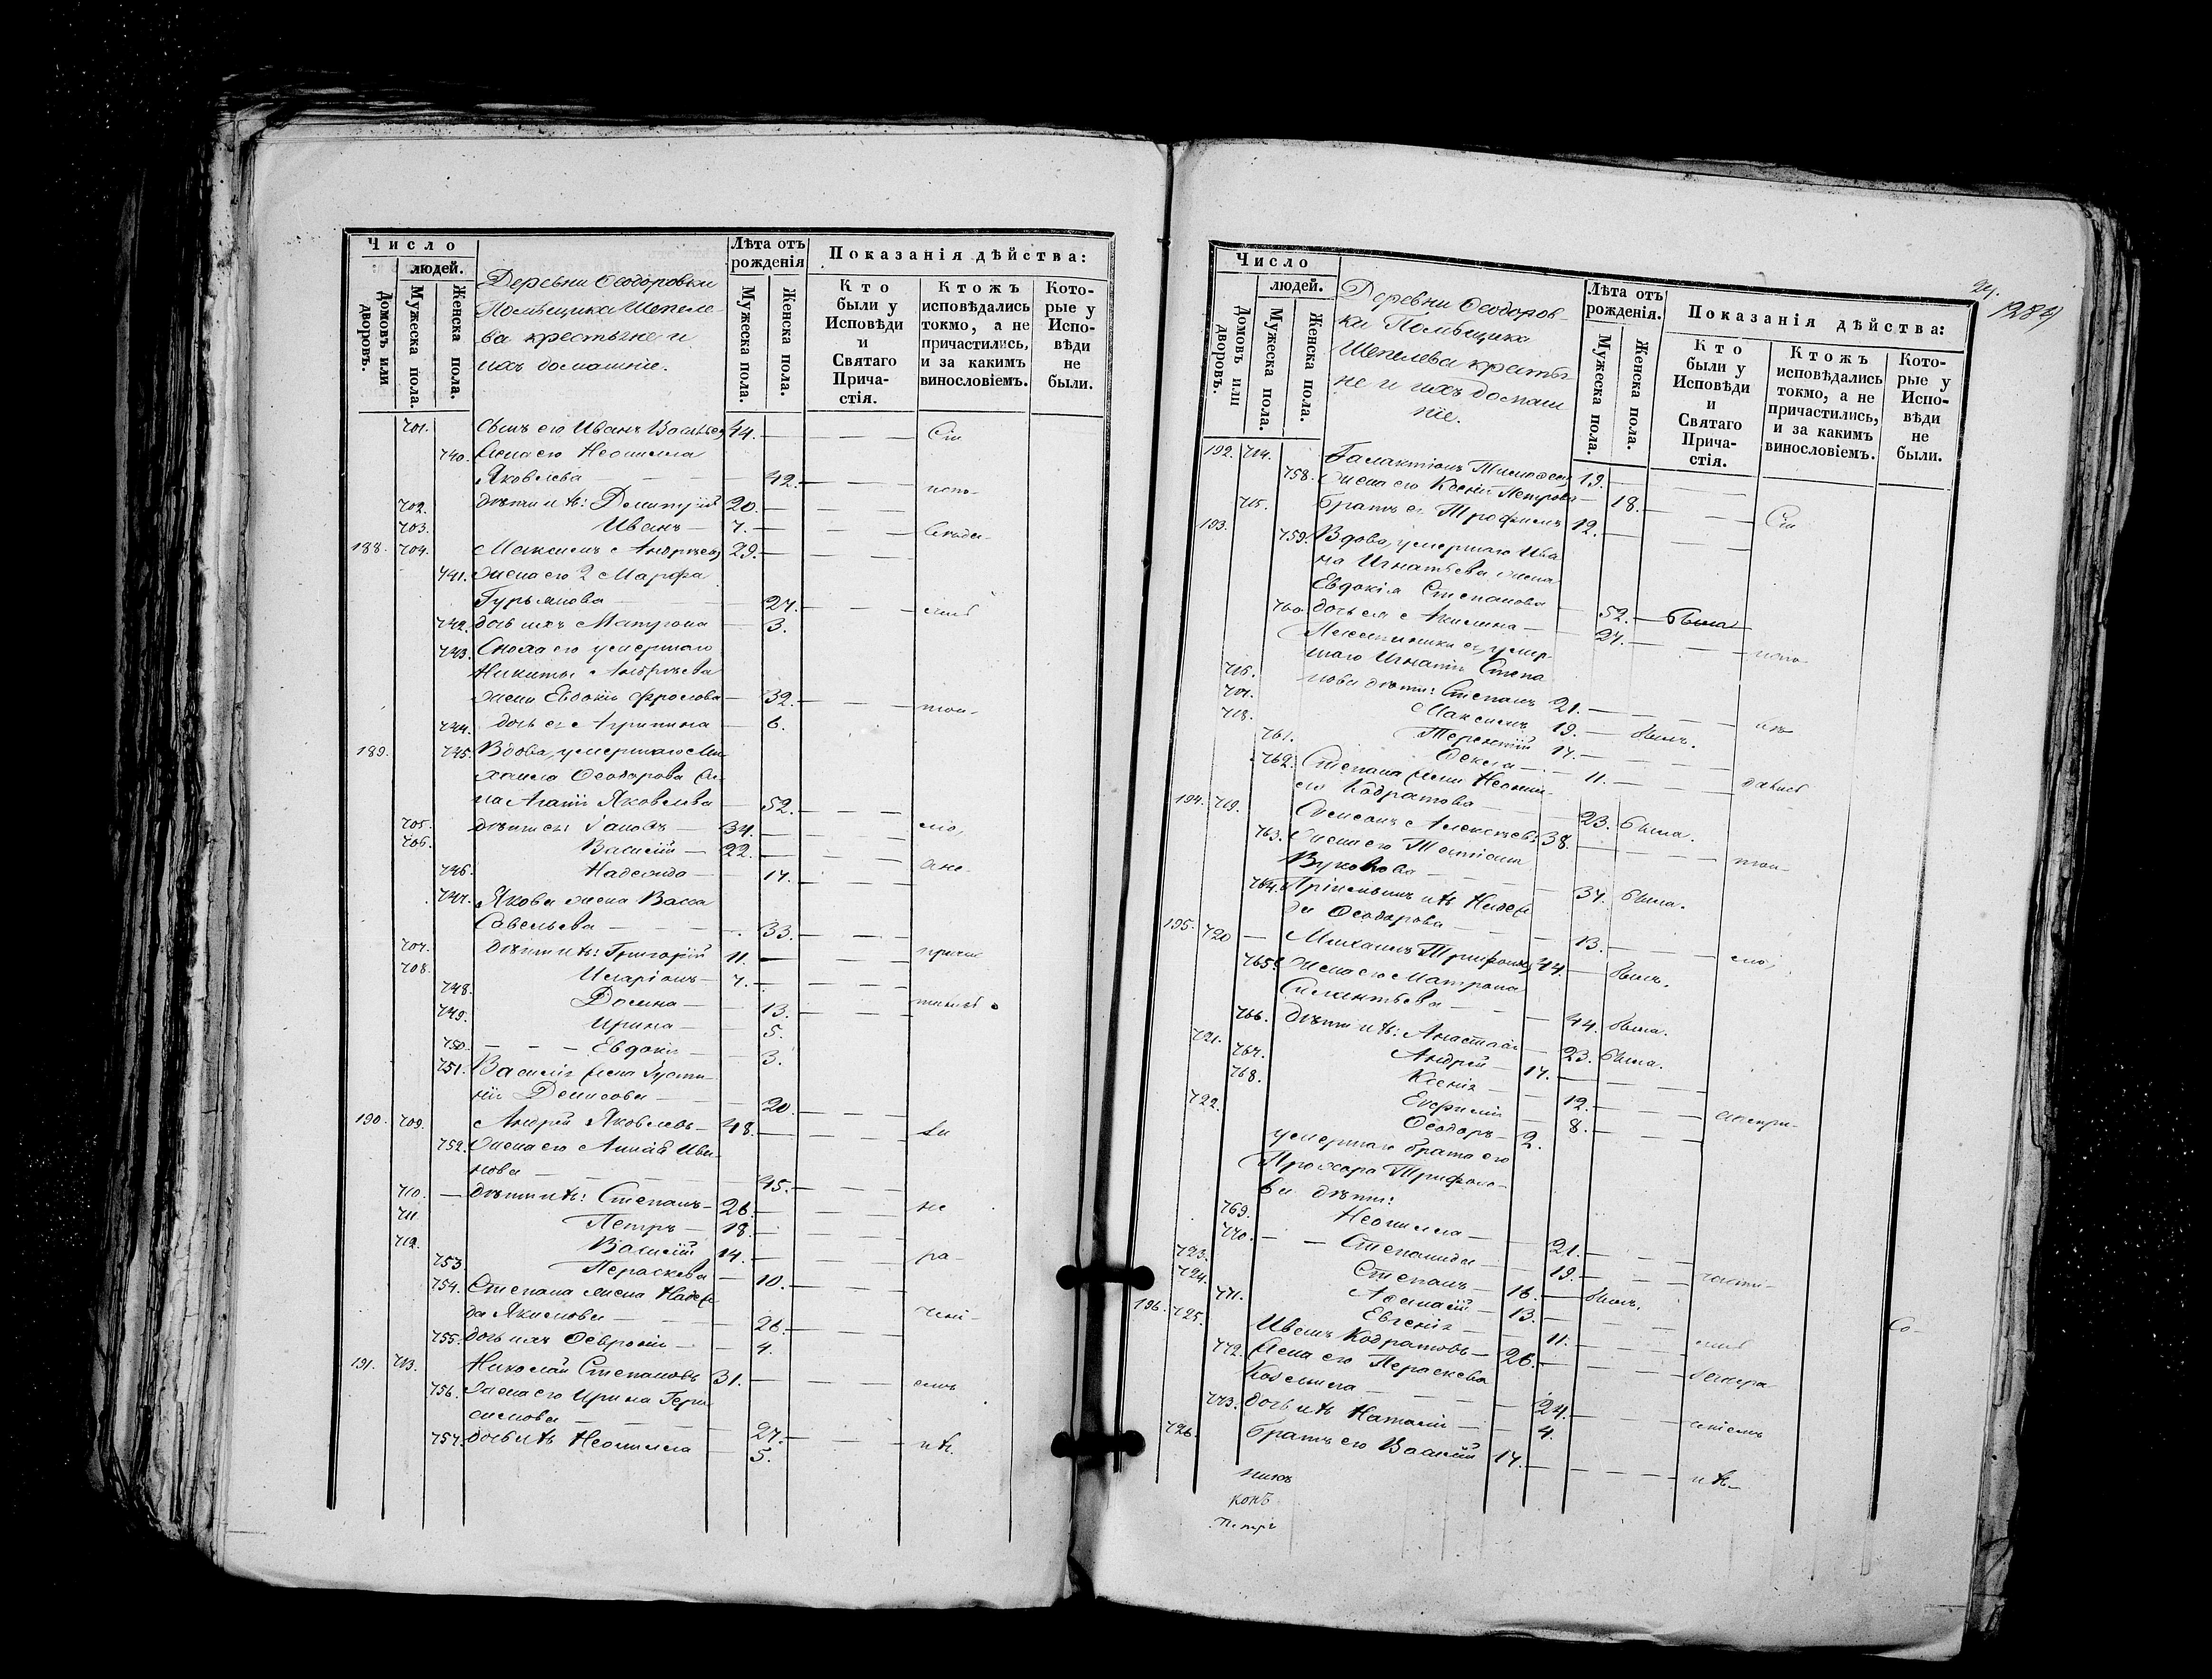 Число
людей.
Домовъ или дворовъ.
Мужеска пола.
Женска пола.
Деревни Ѳеодоровки
Помѣщика Шепеле-
ва крестьяне и
ихъ домашніе.
Лѣта отъ рожденія
Мужеска пола.
Женска пола.
Показанія дѣйства:
Кто были у Исповѣди и Святаго Причастія.
Ктожъ исповѣдались токмо, а не причастились, и за какимъ винословіемъ.
Которые у Исповѣди не были.
701. Сынъ его Иванъ Васильев 44. — — — Сіи
740. Жена его Неонилла
Яковлева — 42. — — — испо-
702. дѣти ихъ: Димитрій 20. — — —
703. Иванъ — 7. — — —
188. 704. Максимъ Андреев 29. — — —
741. Жена его 2 Марфа
Гурьянова — 27. — — —
742. дочь ихъ Матрона — 3.
743. Сноха его умершаго
Никиты Андреева
жена Евдокія Фролова — 32. — — — ток-
744. дочь ея Агрипина — 6.
189. 745. Вдова, умершаго Ми-
хаила Ѳеодорова же-
на Агафія Яковлева — 52. — — —
705. дѣти ея: Яковъ — 34. — — — мо,
706. Василій — 22. — — —
746. Надежда — 17. — — — а не-
747. Якова жена Васса
Савельева — 33. — — —
707. дѣти ихъ: Григорій 11. — — — прича
708. Иларіонъ — 7. — — —
748. Домна — 13. — — —
749. Ирина — 5.
750. — — — Евдокія — 3.
751. Василія жена Іусти-
нія Денисова — 20. — — —
190. 709. Андрей Яковлевъ — 48. — — —
752. Жена его Анна Ива-
нова — 45. — — —
710. — дѣти ихъ: Степанъ — 26. — — — не
711. Петръ — 18. — — —
712. Василій 14. — — — ра-
753. Параскева — 10. — — —
754. Степана жена Надеж-
да Якимова — 26. — — —
755. дочь ихъ Февронія — 4.
191. 713. Николай Степановъ 31. — — —
756. Жена его Ирина Гера-
симова — 27. — — —
757. дочь ихъ Неонилла — 5. ихъ.
24.
1284
Число
людей.
Домовъ или дворовъ.
Мужеска пола.
Женска пола.
Деревни Ѳеодоров-
ки Помѣщика
Шепелева крестья-
не и ихъ домаш
ніе.
Лѣта отъ рожденія.
Мужеска пола.
Женска пола.
Показанія дѣйства:
Кто были у Исповѣди и Святаго Причастія.
Ктожъ исповѣдались токмо, а не причастились, и за какимъ винословіемъ.
Которые у Исповѣди не были.
192. 714. Галактіонъ Тимоѳеев 19. — — —
758. Жена его Ксенія Петрова — 18. — — —
715. братъ ег Трофимъ 12. — — — Сіи
193. 759. Вдова, умершаго Ива
на Игнатьева жена
Евдокія Степанова — 52. — была
760. дочь ея Акилина — 27. — — — испо-
Племянника ея умер-
шаго Игнатія Степа
716. нова дѣти: Степанъ 21. — — —
717. Максимъ 19. — былъ.
718. Терентій 17. — — —
761. Ѳекла — 11. — — —
762. Степана жена Неони-
ла Кодратова — 23. была.
194. 719. Симеонъ Алексеев 38. — — — ток-
763. Жена его Татіана
Вукова — 37. была.
764. Пріемышъ ихъ Надеж
да Ѳеодорова — 13. — — — мо,
195. 720 — Михаилъ Трифонов 44. — былъ.
765. Жена его Матрона
Силантьева — 44. была.
766. дѣти ихъ: Анастасія — 23. была.
721. Андрей — 17. — — —
767. Ксенія — 12. — — —
768. Евфимія — 8. — — —
722. Ѳеодоръ — 2.
умершаго брата его
Прохора Трифоно-
ва дѣти:
769. Неонилла — 21. — — —
770. — — Степанида — 19. — — — части-
723. Степанъ — 16. — былъ.
724. Аѳанасій — 13. — — —
771. Евгенія — 11. — — —
196. 725. Иванъ Кодратовъ — 26. — — —
772. Жена его Параскева
Козмина — 24. — — —
773. дочь ихъ Наталія — 4.
726. братъ его Василій 17. — — — ихъ.
Со-